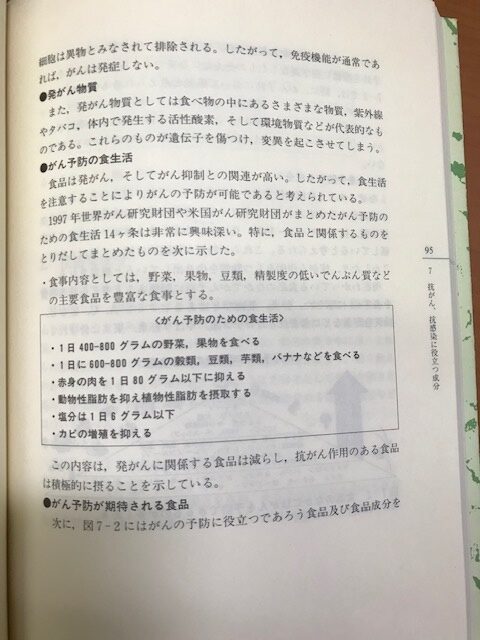 細胞は異物とみなされて排除される。したがって，免疫機能が通常であ
れば，がんは発症しない。
●発がん物質
また，発がん物質としては食べ物の中にあるさまざまな物質，紫外線
やタバコ，体内で発生する活性酸素，そして環境物質などが代表的なも
のである。これらのものが遺伝子を傷つけ，変異を起こさせてしまう。
●がん予防の食生活
食品は発がん，そしてがん抑制との関連が高い。したがって，食生活
を注意することによりがんの予防が可能であると考えられている。
1997年世界がん研究財団や米国がん研究財団がまとめたがん予防の
ための食生活14ヶ条は非常に興味深い。特に，食品と関係するものを
とりだしてまとめたものを次に示した。
・食事内容としては，野菜，果物，豆類，精製度の低いでんぷん質など
の主要食品を豊富な食事とする。
〈がん予防のための食生活〉
・1日400-800グラムの野菜，果物を食べる
・1日に600-800グラムの穀類，豆類，芋類，バナナなどを食べる
・赤身の肉を1日80グラム以下に抑える
・動物性脂肪を抑え植物性脂肪を摂取する
・塩分は1日6グラム以下
・カビの増殖を抑える
この内容は，発がんに関係する食品は減らし，抗がん作用のある食品
は積極的に摂ることを示している。
●がん予防が期待される食品
次に，図7-2にはがんの予防に役立つであろう食品及び食品成分を
95
7 抗がん，抗感染に役立つ成分